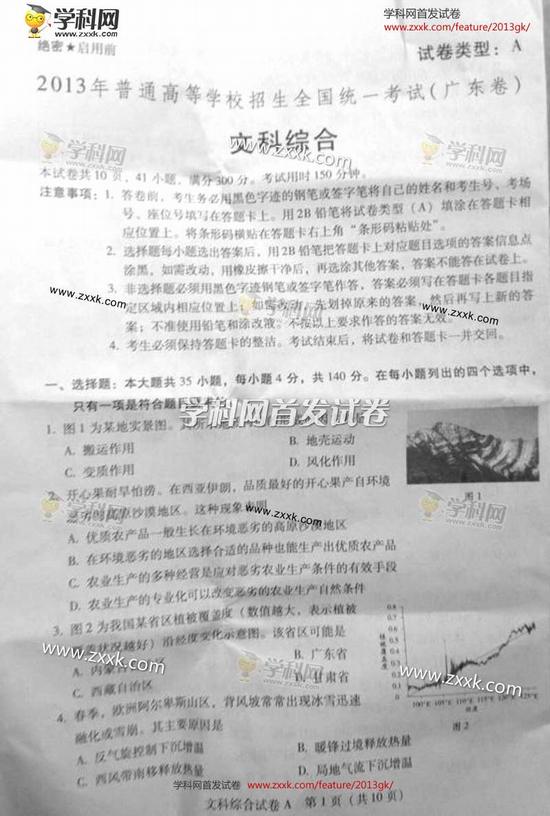 学科网
zxxk.com
学科网首发试卷
www.zxxk.com/feature/2013gk/
绝密★启用前
试卷类型：A
2013年普通高等学校招生全国统一考试（广东卷）
文科综合
www.zxxk.com
本试卷共10页，41小题，满分300分。考试用时150分钟。
注意事项：1. 答卷前，考生务必用黑色字迹的钢笔或签字笔将自己的姓名和考生号、考场
号、座位号填写在答题卡上。用2B铅笔将试卷类型（A）填涂在答题卡相
应位置上。将条形码横贴在答题卡右上角“条形码粘贴处”。
2. 选择题每小题选出答案后，用2B铅笔把答题卡上对应题目选项的答案信息点
涂黑，如需改动，用橡皮擦干净后，再选涂其他答案，答案不能答在试卷上。
3. 非选择题必须用黑色字迹钢笔或签字笔作答，答案必须写在答题卡各题目指
定区域内相应位置上；如需改动，先划掉原来的答案，然后再写上新的答
案；不准使用铅笔和涂改液。不按以上要求作答的答案无效。
4. 考生必须保持答题卡的整洁。考试结束后，将试卷和答题卡一并交回。
一、选择题：本大题共35小题，每小题4分，共140分。在每小题列出的四个选项中，
只有一项是符合题目
学科网首发试卷
1. 图1为某地实景图。
A. 搬运作用 B. 地壳运动
C. 变质作用 D. 风化作用
图1
2. 开心果耐旱怕涝。在西亚伊朗，品质最好的开心果产自环境
恶劣的高原沙漠地区。这种现象表明
A. 优质农产品一般生长在环境恶劣的高原沙漠地区
B. 在环境恶劣的地区选择合适的品种也能生产出优质农产品
C. 农业生产的多种经营是应对恶劣农业生产条件的有效手段
D. 农业生产的专业化可以改变恶劣的农业生产自然条件
3. 图2为我国某省区植被覆盖度（数值越大，表示植被
状况越好）沿经度变化示意图。该省区可能是
A. 内蒙古 B. 广东省
C. 西藏自治区 D. 甘肃省
0.8
0.7
0.6
0.5
0.4
0.3
0.2
0.1
0
植被覆盖度
100°E 105°E 110°E 115°E 120°E 125°E
经度
图2
4. 春季，欧洲阿尔卑斯山区，背风坡常常出现冰雪迅速
融化或雪崩。其主要原因是
A. 反气旋控制下沉增温 B. 暖锋过境释放热量
C. 西风带南移释放热量 D. 局地气流下沉增温
学科网首发试卷 www.zxxk.com/feature/2013gk/
文科综合试卷A 第1页（共10页）